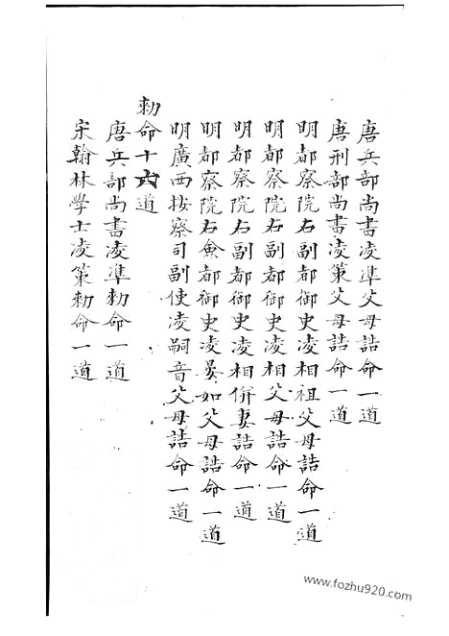 唐兵部尚書凌準父母誥命一道
唐刑部尚書凌策父母誥命一道
明都察院右副都御史凌相祖父母誥命一道
明都察院右副都御史凌相父母誥命一道
明都察院右副都御史凌相併妻誥命一道
明都察院右僉都御史凌晏如父母誥命一道
明廣西按察司副使凌嗣音父母誥命一道
勅命十六道
唐兵部尚書凌準勅命一道
宋翰林學士凌策勅命一道
www.fozhu920.com